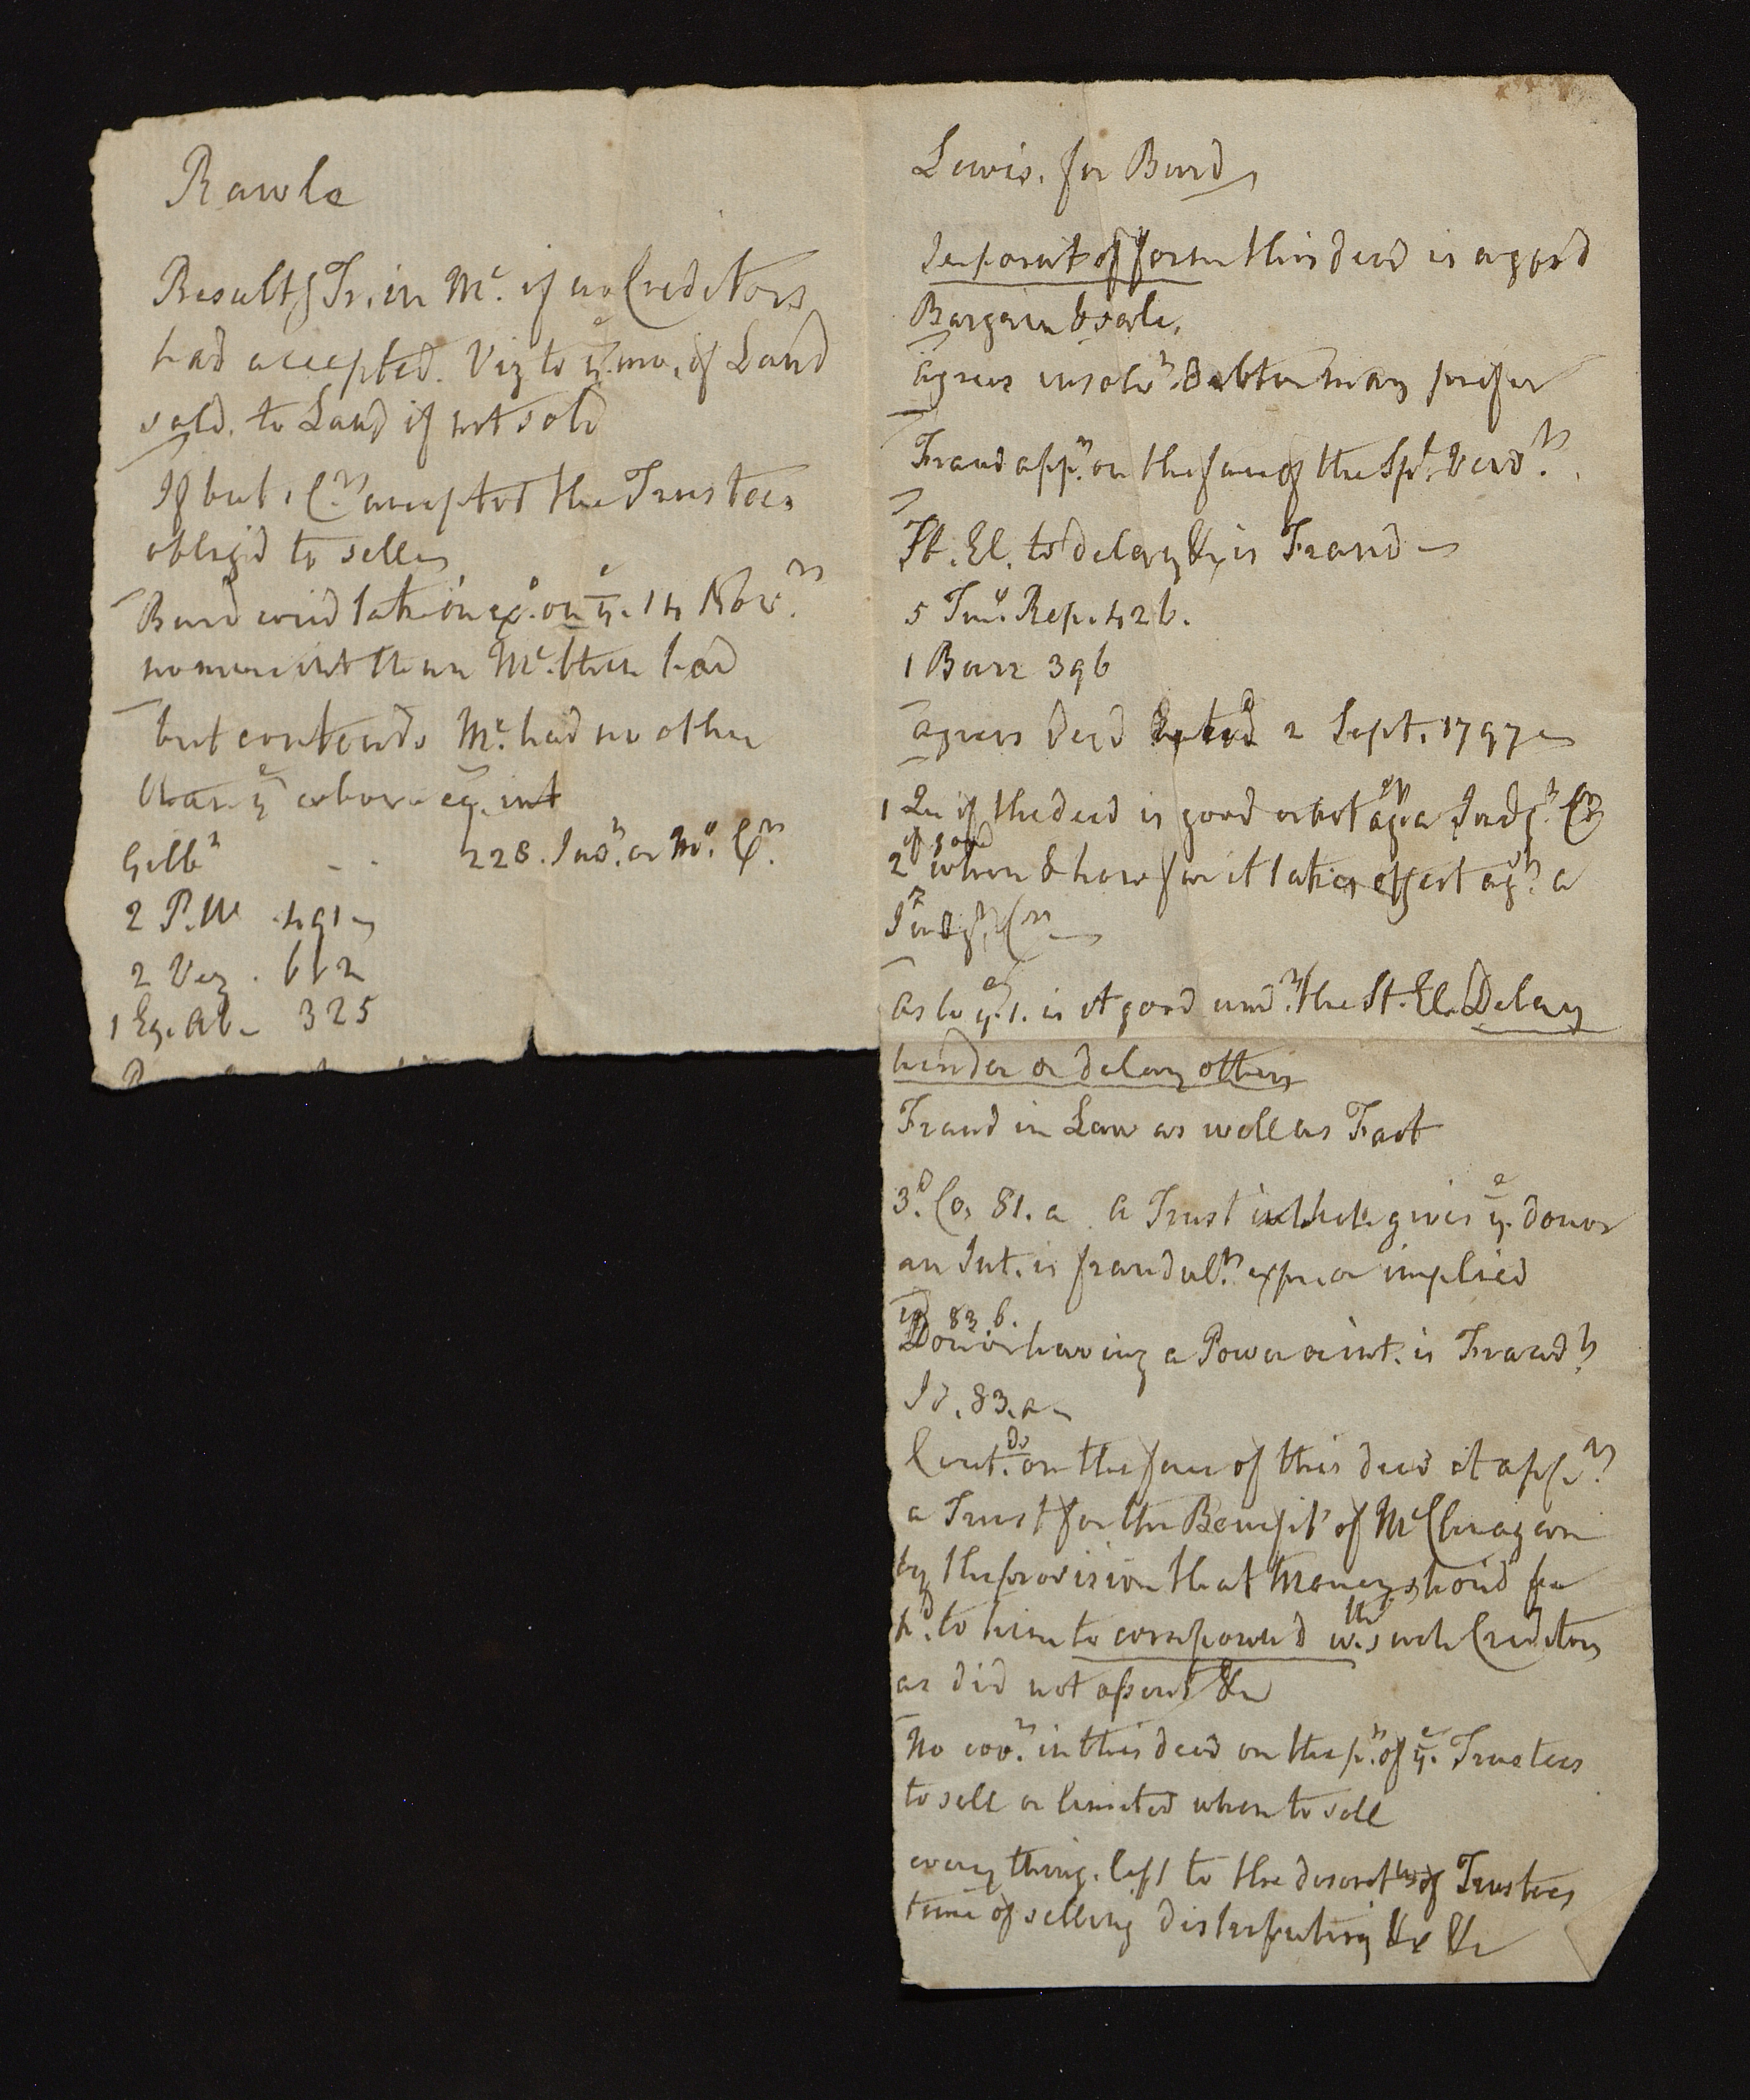 Rawle
Result.g Tr. in Mc. if no Creditors
had accepted. Viz to ye. mo. if Land
sold. to Land if not sold
If but 1 Cr. accepted the Trustees
obliged to sell
Burd coud take in ex. on ye. 14 Nov.
no more int than Mc. then had
but contends Mc. had no other
than ye above eq. int
Gilb - - 228. Jud. or Mo. Cr.
2 P. W 491
2 Vez. 612
1 Eq. Ab. 325
Lewis. for Burd
In point of form this deed is a good
Bargain & sale.
agrees insolvt. Debtor may prefer
Fraud appt. on the face of the Spl. Verdt.
St. El. to delay &c is Fraud
5 Tm. Rep. 426.
1 Burr 396
agrees deed dated 2 Sept. 1797
1 Qu if the deed is good or not agt a Judgt. Cr
if good
2 when & how far it takes effect agt. a
Judgt. Cr
as to ye. 1. is it good undr. the St. El. Delay
hinder or delay others
Fraud in Law as well as Fact
3d. Co. 81. a. a Trust which gives ye. donor
an Int. is fraudult. expr. or implied
id 83. b.
Donor having a Power or int. is Fraudt.
Id. 83. a
Cont.ds on the face of this deed it appr.
a Trust for the Benefit of McClenagan
by the provision that money shoud be
pd. to him to compound wth. such Creditors
as did not assent &c
No cov.t in this deed on the pt. of ye. Trustees
to sell or limited when to sell
every thing. left to the discretn of Trustees
time of selling distributing &c &c